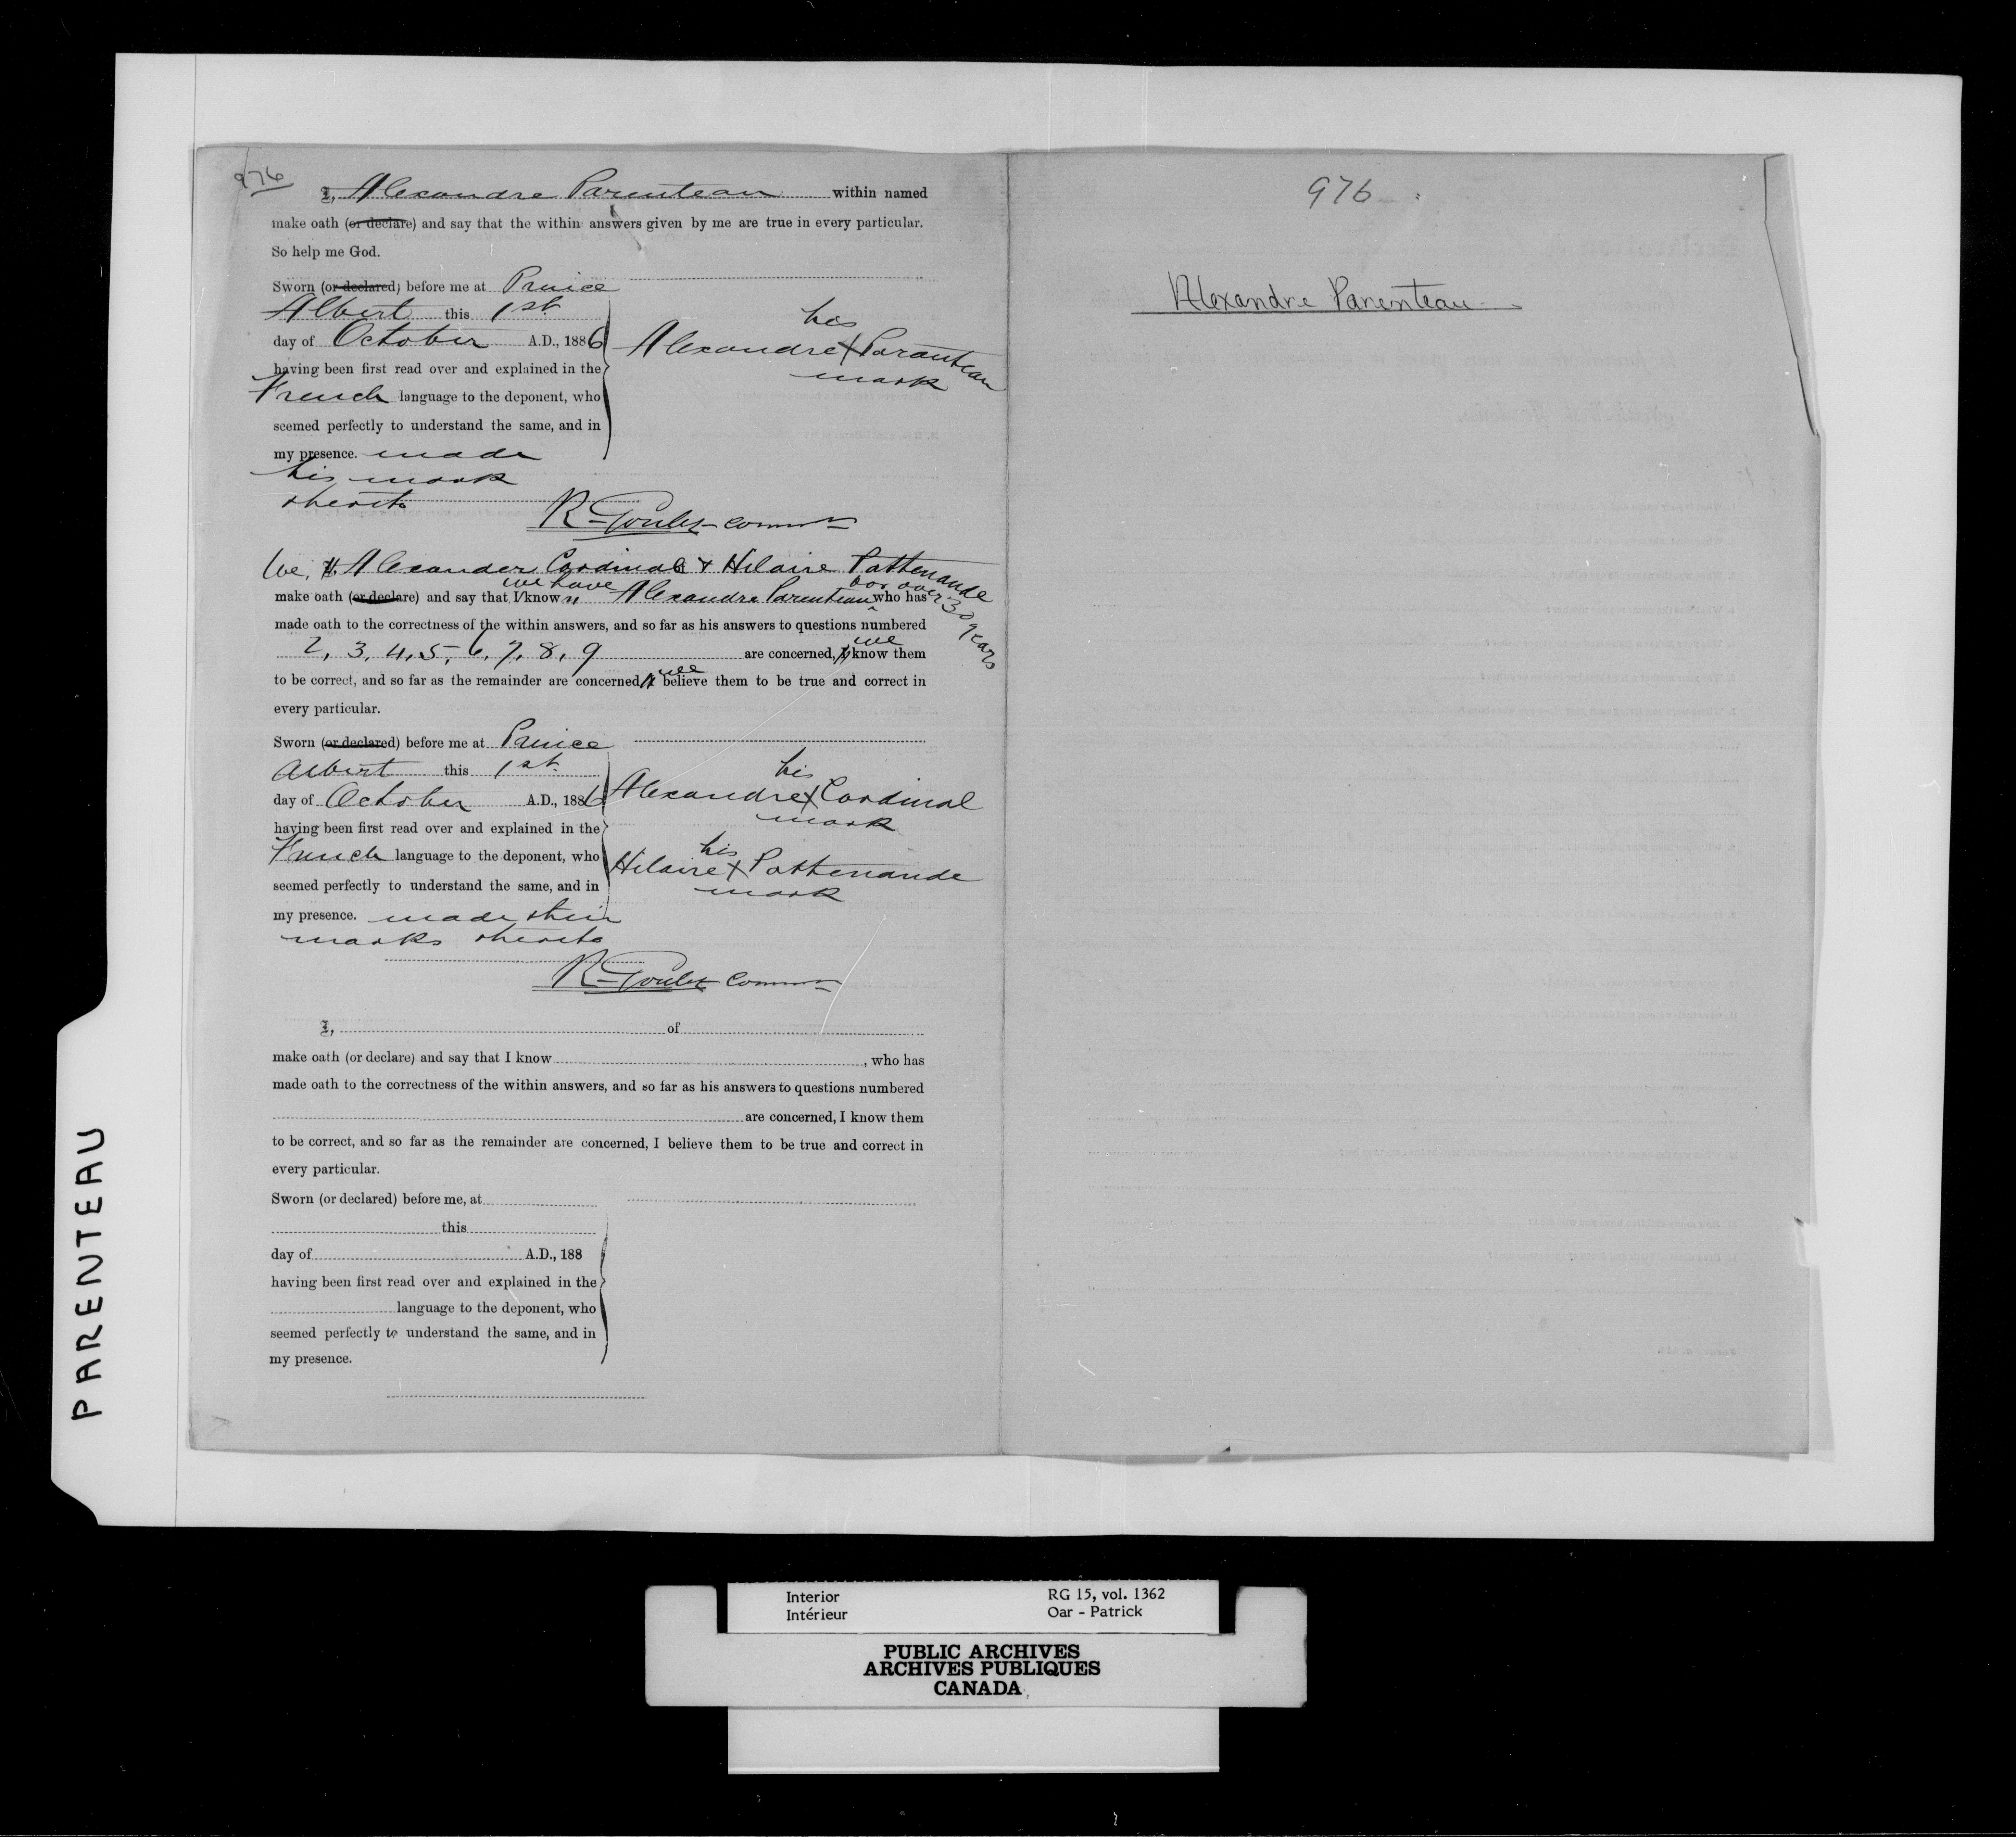 976
I, Alexandre Parenteau within named
make oath (or declare) and say that the within answers given by me are true in every particular.
So help me God.
Sworn (or declared) before me at Prince
Albert this 1st
day of October A.D., 1886
having been first read over and explained in the
French language to the deponent, who
seemed perfectly to understand the same, and in
my presence. made
his mark
thereto
his
Alexandre X Paranteau
mark
R Goulet Commr
We, I, Alexander Cardinal & Hilaire Pattenaude
we have for over 30 years
make oath (or declare) and say that I known Alexandre Parenteau who has
made oath to the correctness of the within answers, and so far as his answers to questions numbered
2, 3, 4, 5, 6, 7, 8, 9 are concerned, I we know them
to be correct, and so far as the remainder are concerned, I we believe them to be true and correct in
every particular.
Sworn (or declared) before me at Prince
Albert this 1st
day of October A.D., 1886
having been first read over and explained in the
French language to the deponent, who
seemed perfectly to understand the same, and in
my presence. made their
marks thereto
his
Alexandre X Cardinal
mark
his
Hilaire X Pattenaude
mark
R Goulet Commr
I, of
make oath (or declare) and say that I know , who has
made oath to the correctness of the within answers, and so far as his answers to questions numbered
are concerned, I know them
to be correct, and so far as the remainder are concerned, I believe them to be true and correct in
every particular.
Sworn (or declared) before me, at
this
day of A.D., 188
having been first read over and explained in the
language to the deponent, who
seemed perfectly to understand the same, and in
my presence.
976
Alexandre Parenteau
PARENTEAU
Interior
Intérieur
RG 15, vol. 1362
Oar - Patrick
PUBLIC ARCHIVES
ARCHIVES PUBLIQUES
CANADA